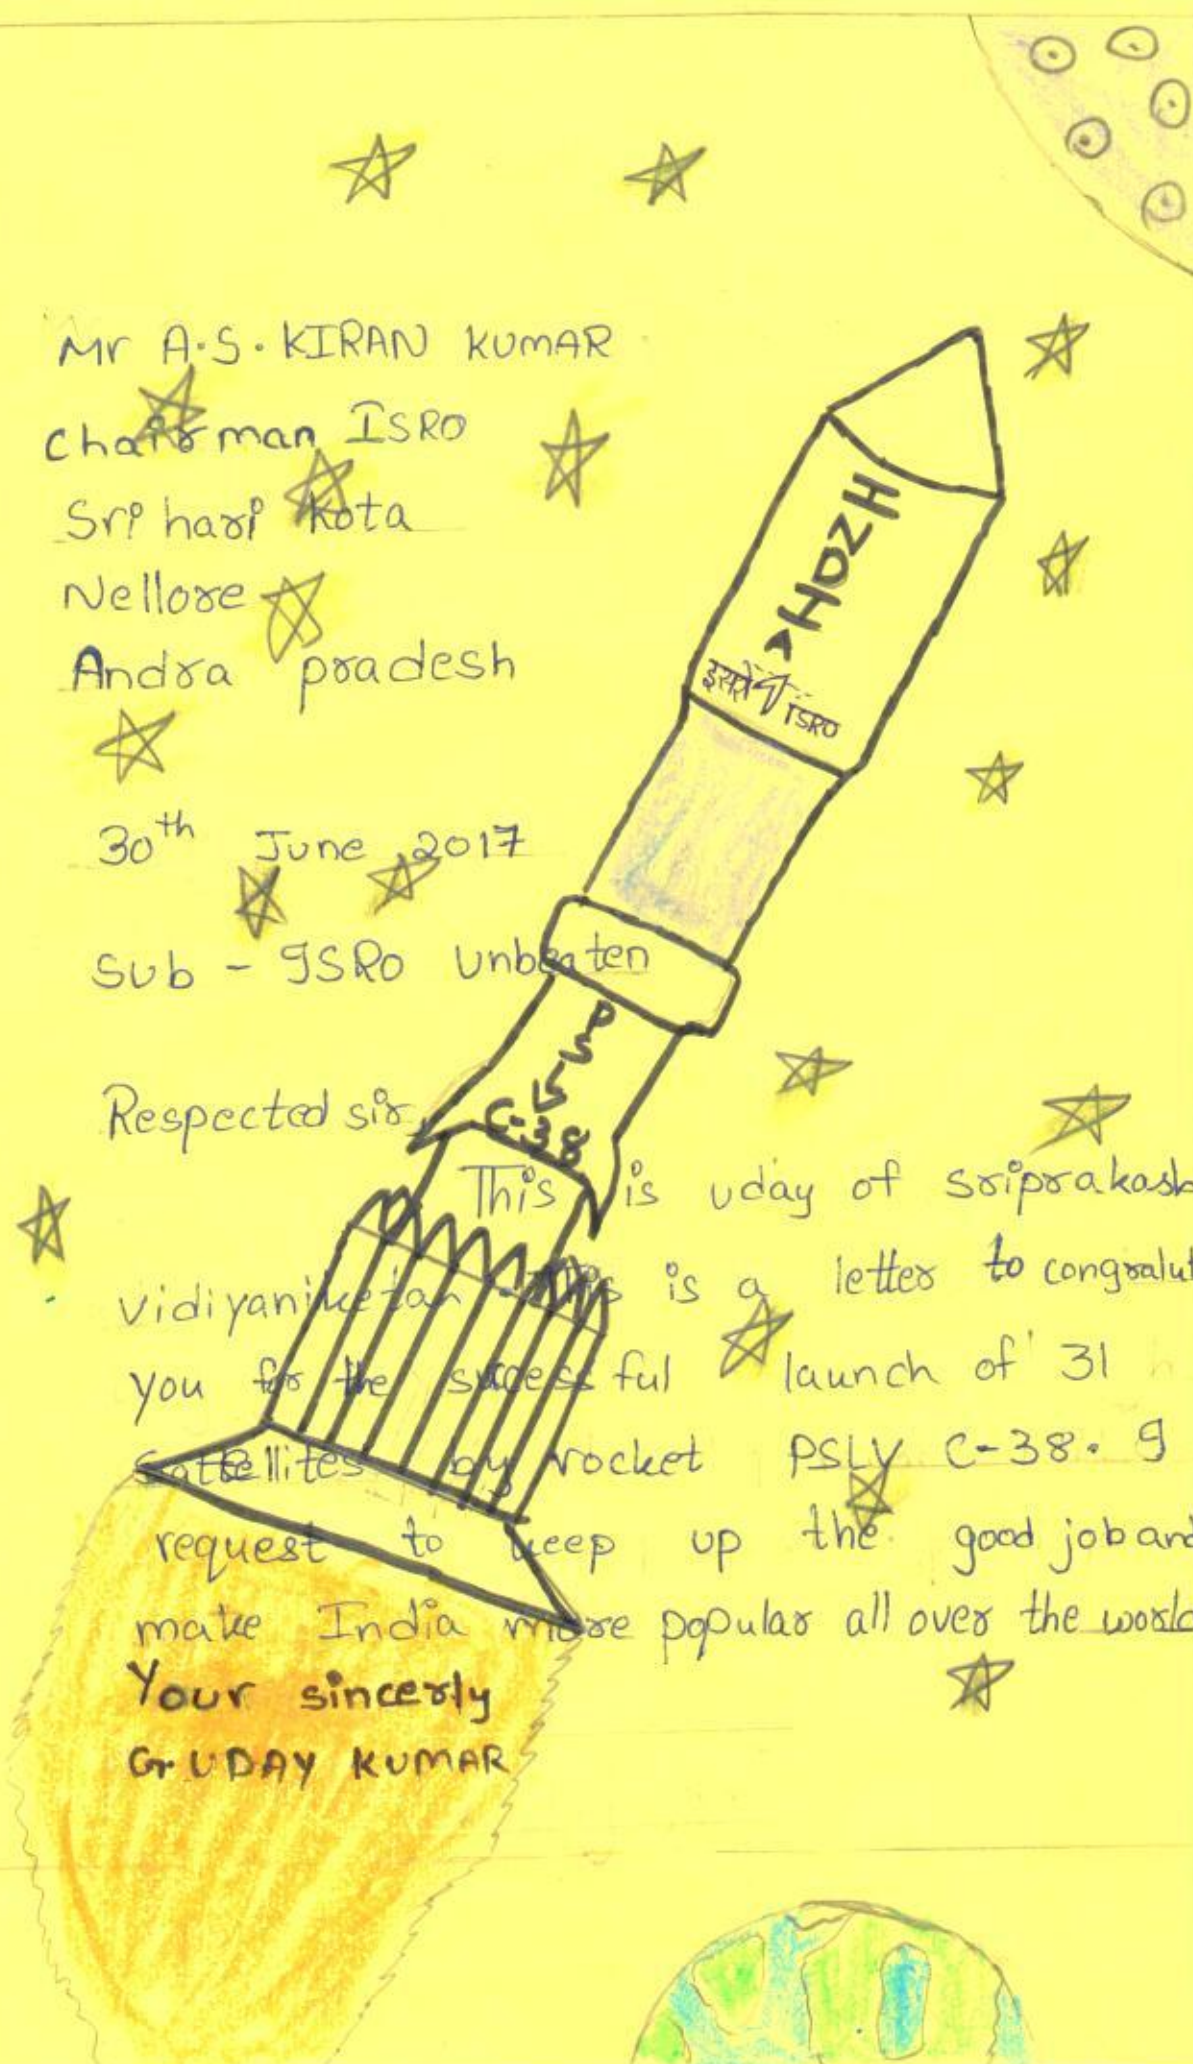 Mr A.S. KIRAN KUMAR
Chairman ISRO
Sri hari kota
Nellore
Andra pradesh
30th June 2017
Sub - ISRO Unbeaten
Respected sir
This is uday of sriprakash
vidiyaniketan This is a letter to congralut
you for the sucessful launch of 31
sattellites by rocket PSLV C-38. I
request to keep up the good job and
make India more popular all over the world
Your sincerly
G UDAY KUMAR
INDIA
इसरो ISRO
PSLV
C-38